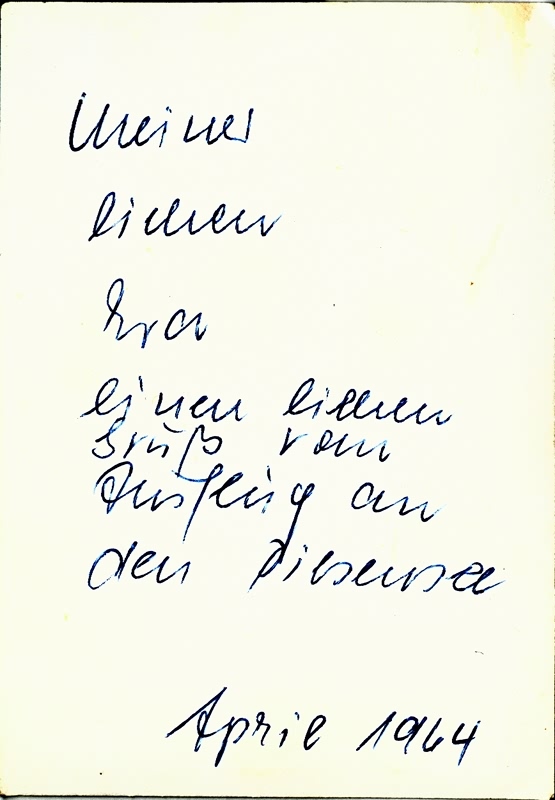 Meiner
lieben
Eva
einen lieben
Gruß vom
Ausflug an
den
April 1964